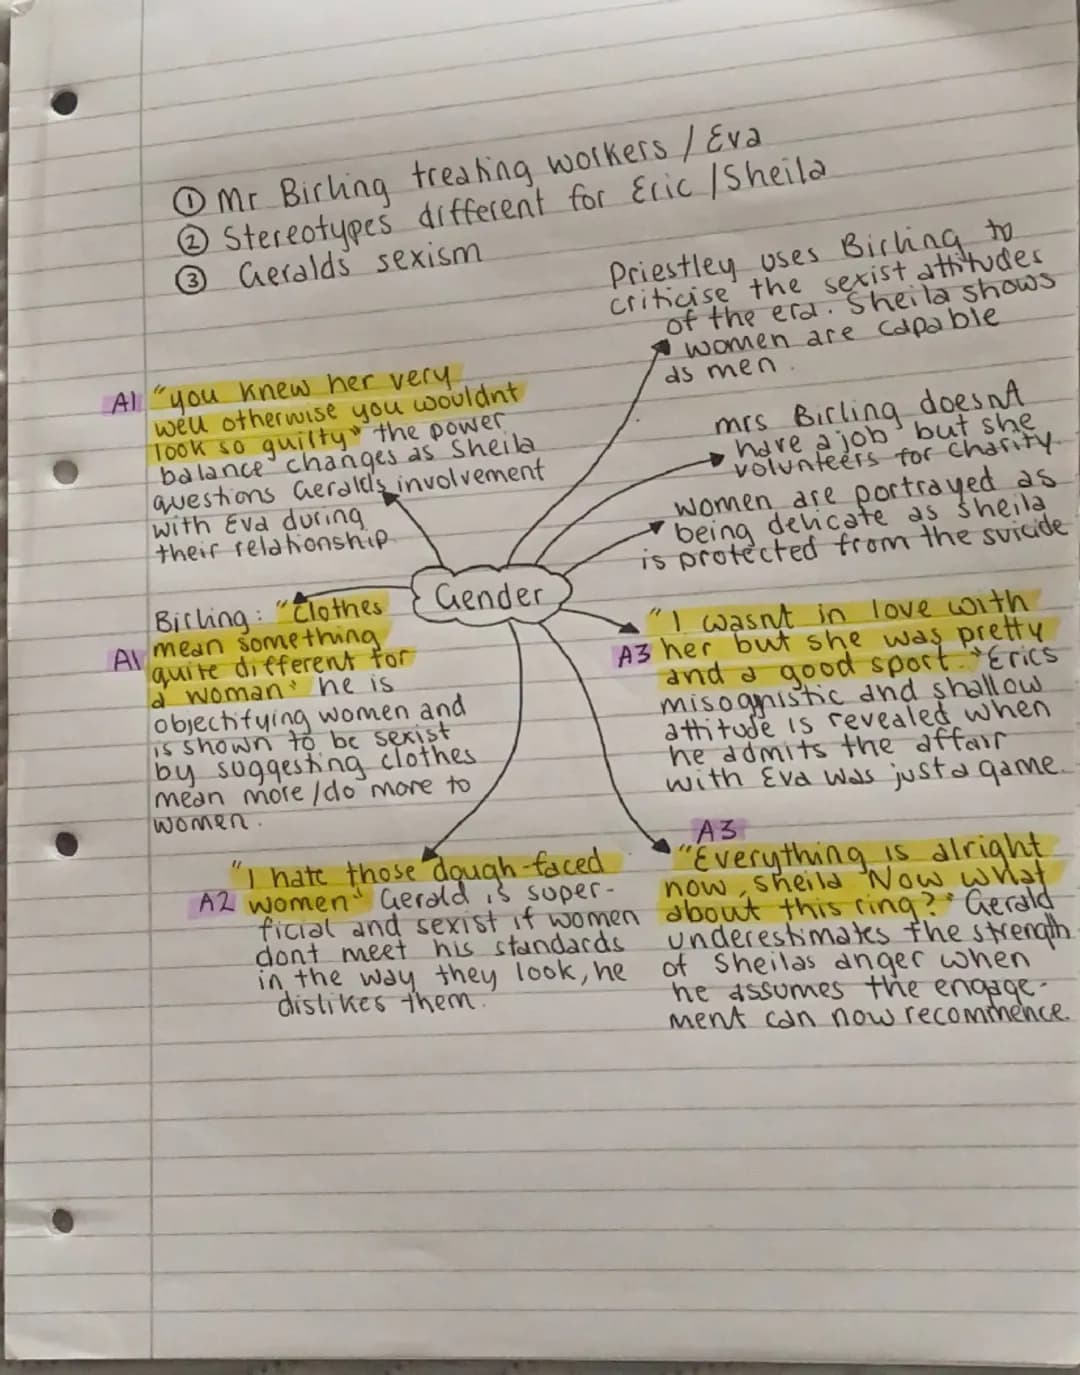 ① Mr Birling treating workers / Eva
② Stereotypes different for Eric / Sheila
③ Geralds sexism
Priestley uses Birling to
criticise the sexist attitudes
of the era. Sheila shows
women are capable
as men.
A1 "you knew her very
well otherwise you wouldnt
look so guilty" the power
balance changes as Sheila
questions Geralds involvement
with Eva during
their relationship
mrs Birling doesnt
have a job but she
volunteers for charity.
women are portrayed as
being delicate as sheila
is protected from the suicide
Gender
Birling: "Clothes
A1 mean something
quite different for
a woman" he is
objectifying women and
is shown to be sexist
by suggesting clothes
mean more / do more to
women.
"I wasnt in love with
A3 her but she was pretty
and a good sport." Erics
misognistic and shallow
attitude is revealed when
he admits the affair
with Eva was just a game.
"I hate those dough-faced
A2 women" Gerald is super-
ficial and sexist if women
dont meet his standards
in the way they look, he
dislikes them.
A3
"Everything is alright
now, sheila Now what
about this ring?" Gerald
underestimates the strength
of Sheilas anger when
he assumes the engage-
ment can now recommence.